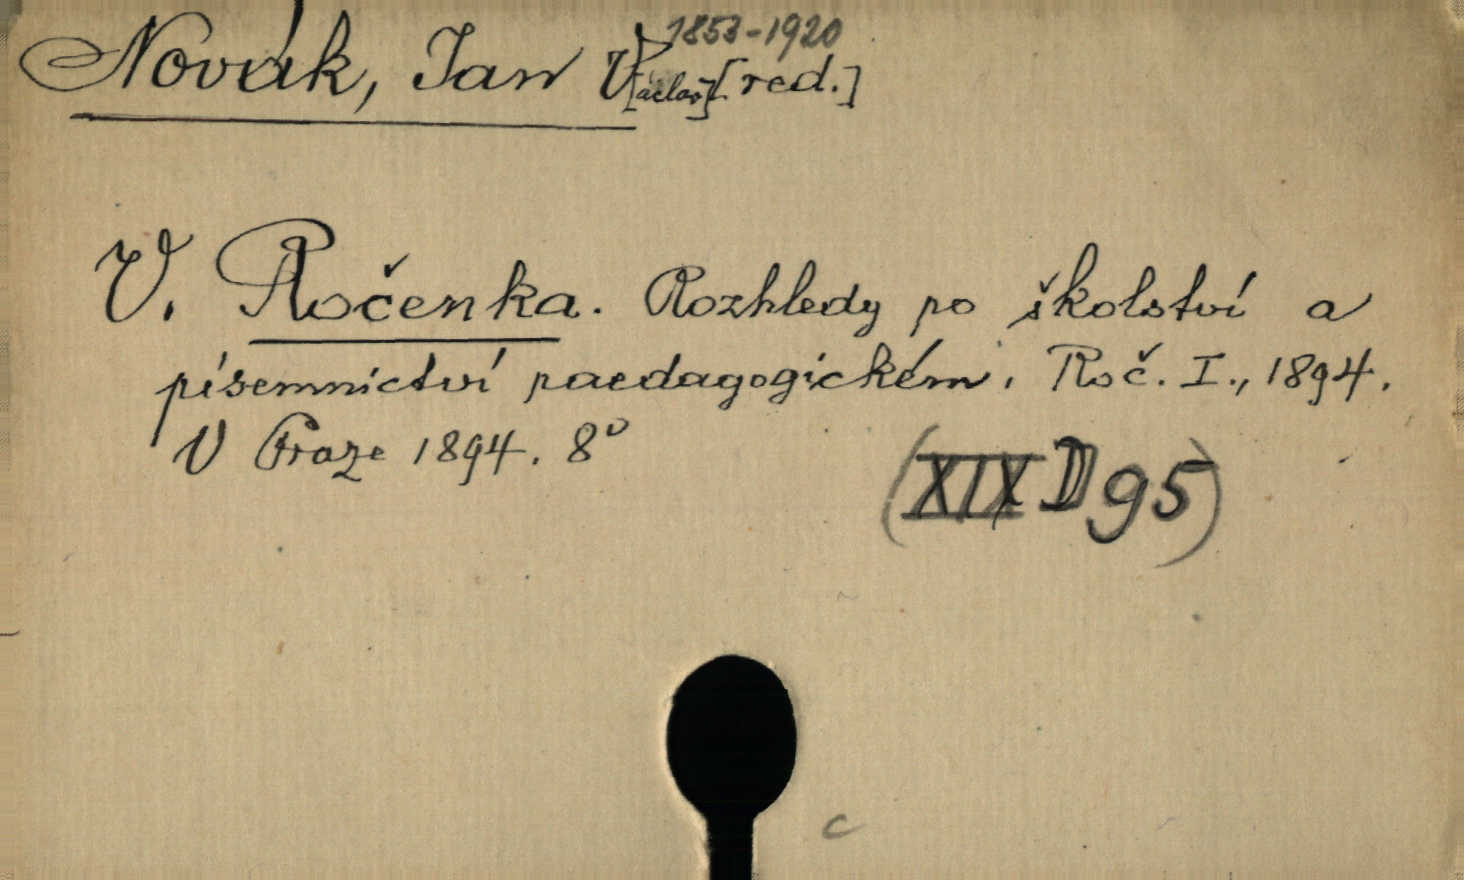 1853-1920
Novák, Jan V[áclav] [red.]
V. Ročenka. Rozhledy po školství a
písemnictví paedagogickém. Roč. I., 1894.
V Praze 1894. 8°
(XIX D 95)
c